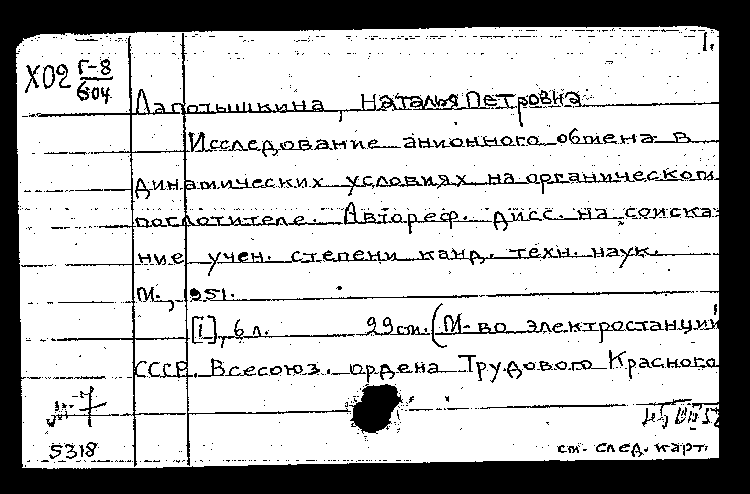 1.
Х02 Г-8
604
Лапотышкина, Наталья Петровна
Исследование анионного обмена в
динамических условиях на органическом
поглотителе. Автореф. дисс. на соиска-
ние учен. степени канд. техн. наук.
М., 1951.
[1], 6 л. 29 см. (М-во электростанций
СССР. Всесоюз. ордена Трудового Красного
М-7
5318
см. след. карт.